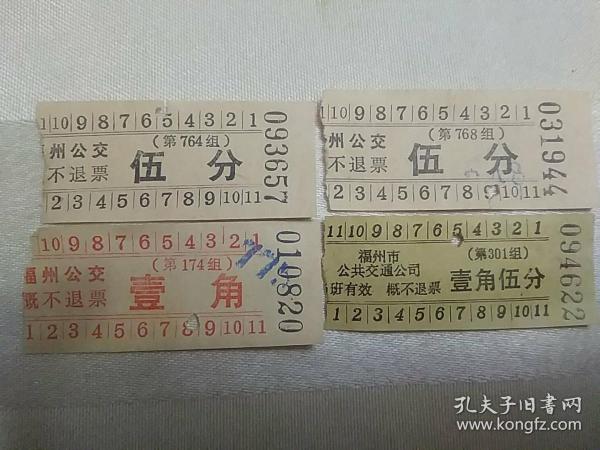 1 10 9 8 7 6 5 4 3 2 1
(第764组)
州公交
不退票
伍分
2 3 4 5 6 7 8 9 10 11
093657
10 9 8 7 6 5 4 3 2 1
(第768组)
州公交
不退票
伍分
2 3 4 5 6 7 8 9 10 11
031944
10 9 8 7 6 5 4 3 2 1
(第174组)
福州公交
概不退票
壹角
1 2 3 4 5 6 7 8 9 10 11
11 10 9 8 7 6 5 4 3 2 1
福州市
公共交通公司
(第301组)
壹角伍分
班有效 概不退票
1 2 3 4 5 6 7 8 9 10 11
094622
孔夫子旧书网
www.kongfz.com